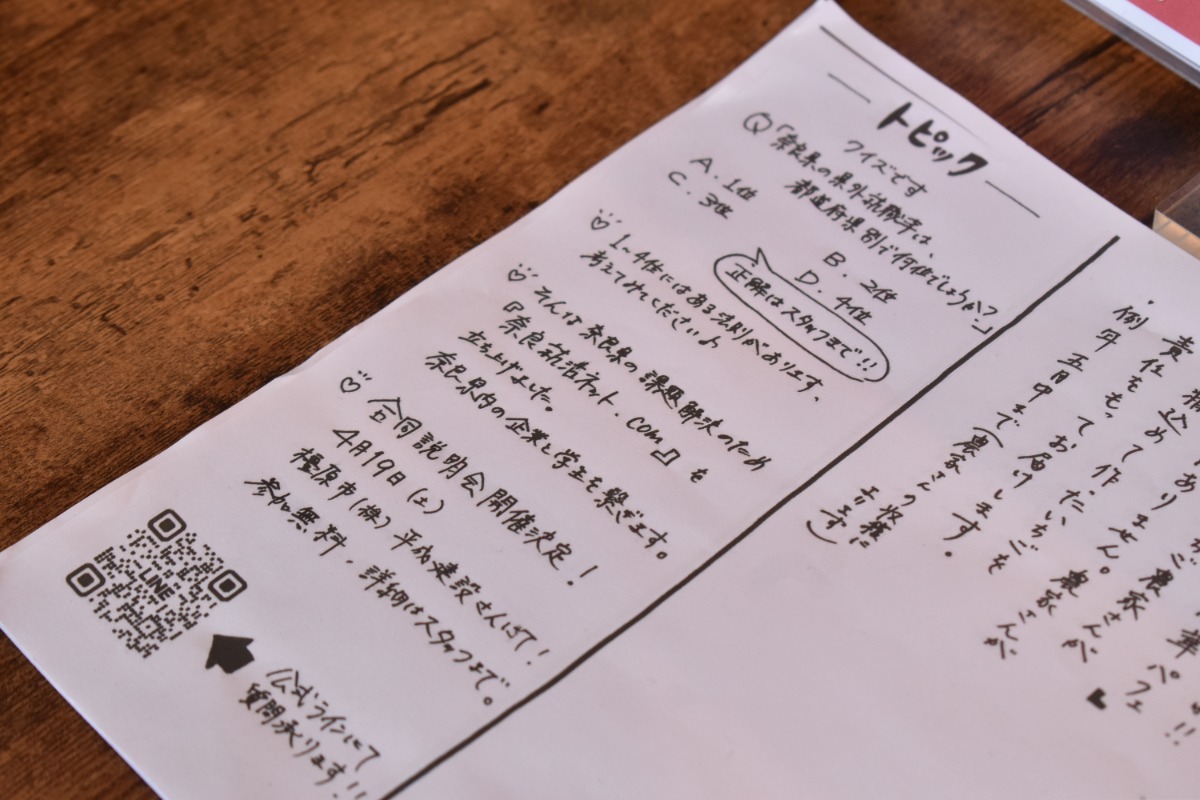 トピック
クイズです
Q「奈良県の県外就職率は、
都道府県別で何位でしょうか?」
A. 1位
B. 2位
C. 3位
D. 4位
正解はスタッフまで!!
1~4位にはある法則があります、
考えてみてください♪
そんな奈良県の課題解決のため
『奈良就活ネット.com』を
立ち上げました。
奈良県内の企業と学生を繋ぎます。
合同説明会開催決定!
4月19日(土)
橿原市(株)平成建設さんにて!
参加無料、詳細はスタッフまで。
LINE
公式ラインにて
質問承ります!!
ありません。
責任をもって作ったいちごを
例年 五月中まで(農家さんの収穫に
お届けします。